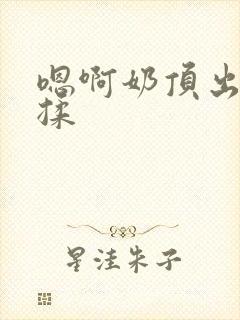 嗯啊奶頂出
揉
星洼朱子